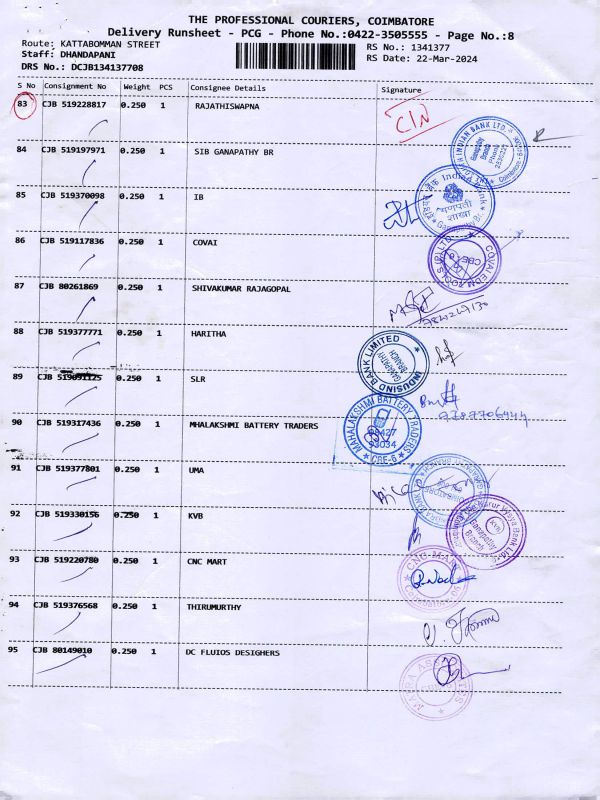 THE PROFESSIONAL COURIERS, COIMBATORE
Delivery Runsheet - PCG - Phone No.:0422-3505555 - Page No.:8
Route: KATTABOMMAN STREET RS No.: 1341377
Staff: DHANDAPANI RS Date: 22-Mar-2024
DRS No.: DCJB134137708
S No Consignment No Weight PCS Consignee Details Signature
83 CJB 519228817 0.250 1 RAJATHISWAPNA
84 CJB 519197971 0.250 1 SIB GANAPATHY BR
85 CJB 519370098 0.250 1 IB
86 CJB 519117836 0.250 1 COVAI
87 CJB 80261869 0.250 1 SHIVAKUMAR RAJAGOPAL
88 CJB 519377771 0.250 1 HARITHA
INDUSIND BANK LIMITED
GANAPATHY
BRANCH
89 CJB 519691125 0.250 1 SLR
90 CJB 519317436 0.250 1 MHALAKSHMI BATTERY TRADERS
MAHALAKSHMI BATTERY TRADERS
CBE-6
91 CJB 519377801 0.250 1 UMA
92 CJB 519330156 0.250 1 KVB
93 CJB 519220780 0.250 1 CNC MART
CNC MART
94 CJB 519376568 0.250 1 THIRUMURTHY
95 CJB 80149010 0.250 1 DC FLUIOS DESIGHERS